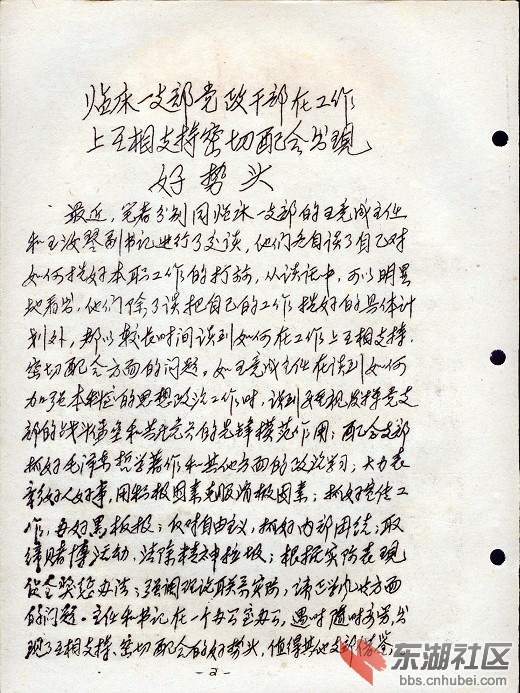 临床一支部党政干部在工作
上互相支持密切配合出现
好势头
最近，笔者分别同临床一支部的王竞成主任
和王汝琴副书记进行了交谈，他们各自谈了自己对
如何搞好本职工作的打算，从谈话中，可以明显
地看出，他们除了谈把自己的工作搞好的具体计
划外，都以较长时间谈到如何在工作上互相支持、
密切配合方面的问题。如王竞成主任在谈到如何
加强本科室的思想政治工作时，谈到重视发挥党支
部的战斗堡垒和共产党员的先锋模范作用；配合支部
抓好毛泽东哲学著作和其他方面的政治学习；大力表
彰好人好事，用积极因素克服消极因素；抓好宣传工
作，办好黑板报；反对自由主义，抓好内部团结；取
缔赌博活动，清除精神垃圾；根据实际表现
奖惩办法；强调理论联系实际，
的问题。主任和书记在一个办公室办公，遇事随时交谈，出
现了互相支持、密切配合的好势头，值得其他支部借鉴。
-2-
东湖社区
bbs.cnhubei.com